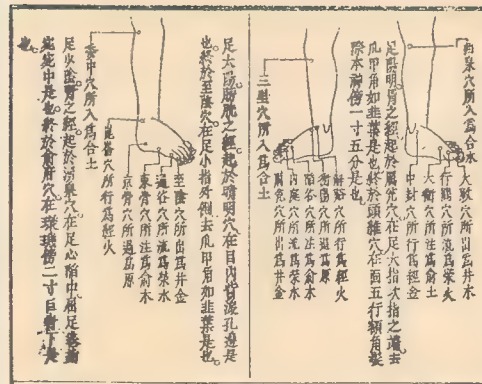 曲泉穴所入爲合水
大敦穴所出爲井木
行間穴所流爲滎火
大衝穴所注爲俞土
中封穴所行爲經金
足陽明胃之經起於厲兌穴在足大指次指之端去
爪甲角如韭葉是也終於頭維穴在面五行額角髮
際本神傍一寸五分是也
解谿穴所行爲經火
衝陽穴所過爲原
陷谷穴所注爲俞木
內庭穴所流爲滎水
厲兌穴所出爲井金
三里穴所入爲合土
足太陽膀胱之經起於睛明穴在目內眥淚孔邊是
也終於至陰穴在足小指外側去爪甲角如韭葉是也
至陰穴所出爲井金
通谷穴所流爲滎水
束骨穴所注爲俞木
京骨穴所過爲原
崑崙穴所行爲經火
委中穴所入爲合土
足少陰腎之經起於湧泉穴在足心陷中屈足捲指
宛宛中是也終於俞府穴在璇璣傍二寸巨骨下是
也